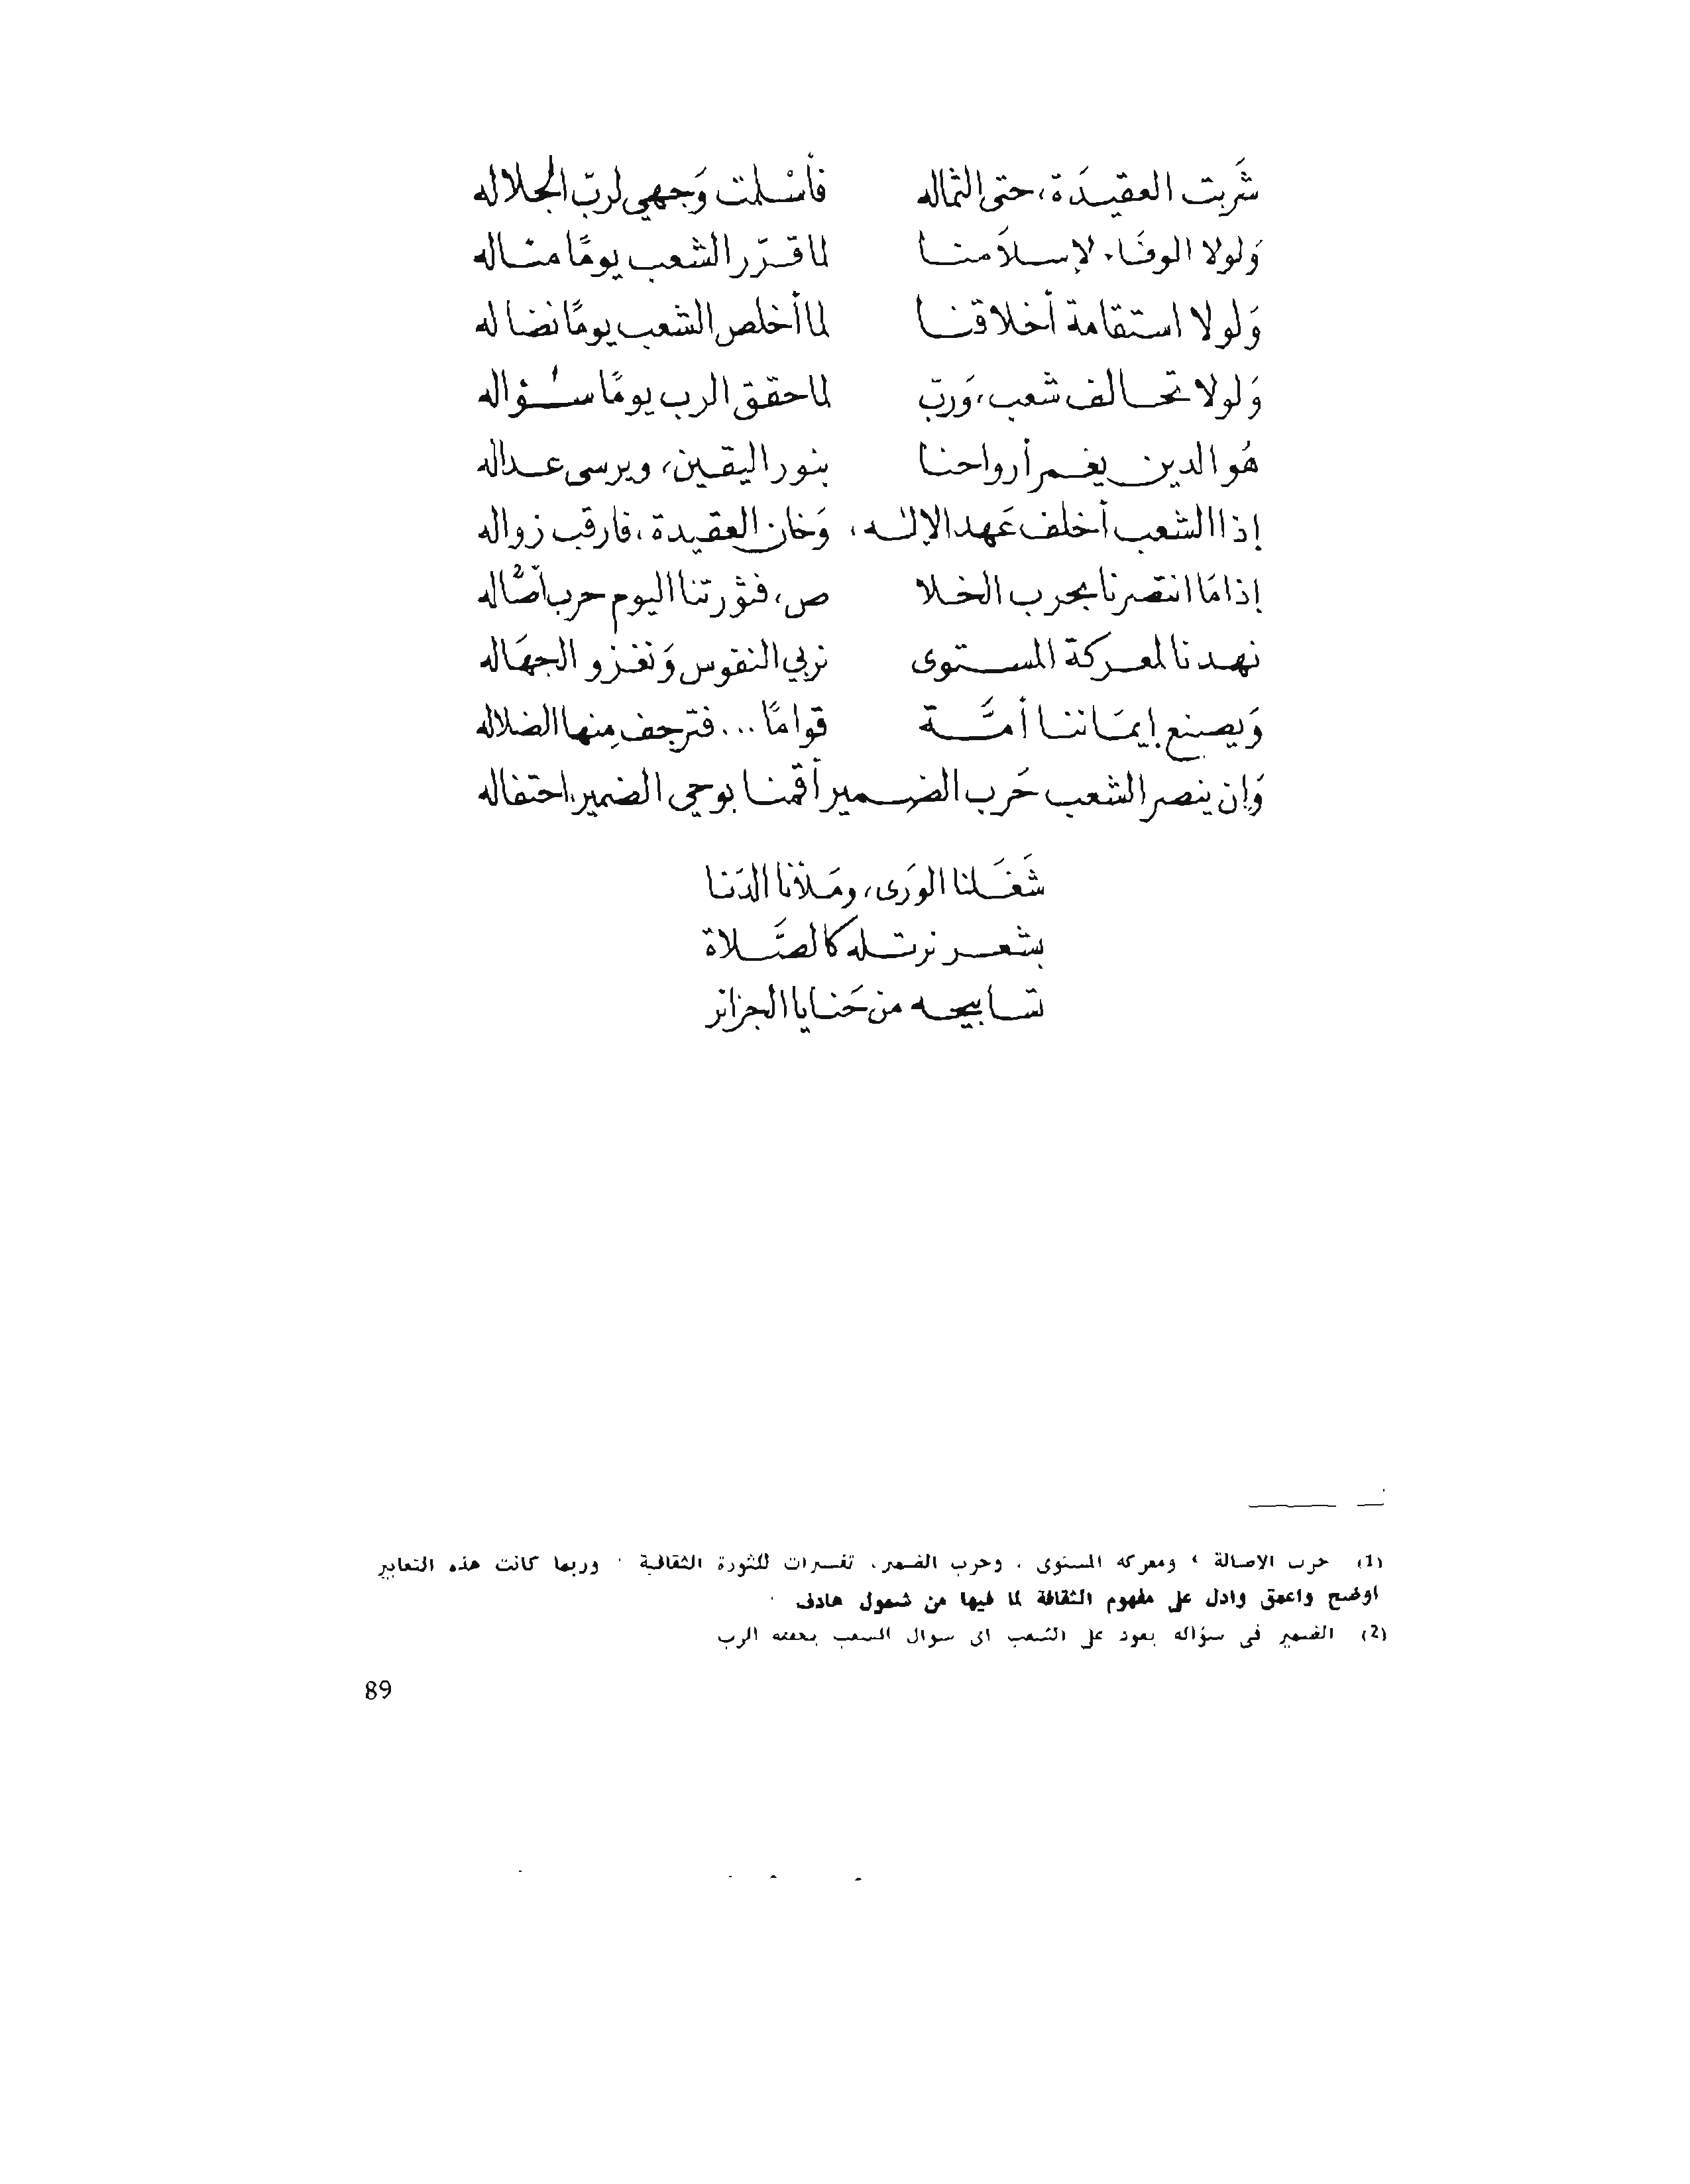 شَربت العقيدَة، حتى الثماله    فأسْلمت وَجهي لربّ الجلاله
وَلولا الوفَاء لإسلاَمنا    لما قرّر الشعب يومًا مناله
وَلولا استقامة أخلاقنا    لما أخلص الشعب يومًا نضاله
وَلولا تحالف شعب، وَربّ    لما حقق الرب يومًا سؤاله
هُو الدين يغمر أرواحنا    بنور اليقين، ويرسى عداله
إذا الشعب أخلف عَهد الإله،    وَخان العقيدة، فارقب زواله
إذا مَا انتصرنا بحرب الخلا    ص، فثورتنا اليوم حرب أصَاله 2
نهدنا لمعركة المستوى    نربي النفوس وَنغزو الجهَاله
وَيصنع إيمَاننا أمَّة    قوامًا... فترجف مِنها الضلاله
وَإن ينصر الشعب حَرب الضمير    أقمنا بوحي الضمير احتفاله
شَغَلنا الورَى، ومَلأنا الدّنا
بشعر نرتله كالصَّلاة
تسابيحه من حَنايا الجزائر
(1) حرب الاصالة ، ومعركه المستوى ، وحرب الضمير، تفسيرات للثورة الثقافية . وربما كانت هذه التعابير
اوضح واعمق وادل على مفهوم الثقافة لما فيها من شمول هادف .
(2) الضمير فى سؤاله يعود على الشعب اى سوال الشعب يحققه الرب
89